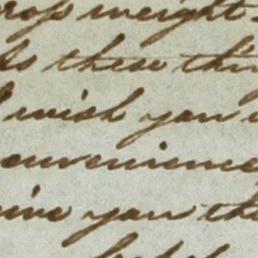 rop weight
As these thin
I wish you
onvenience
eive you the